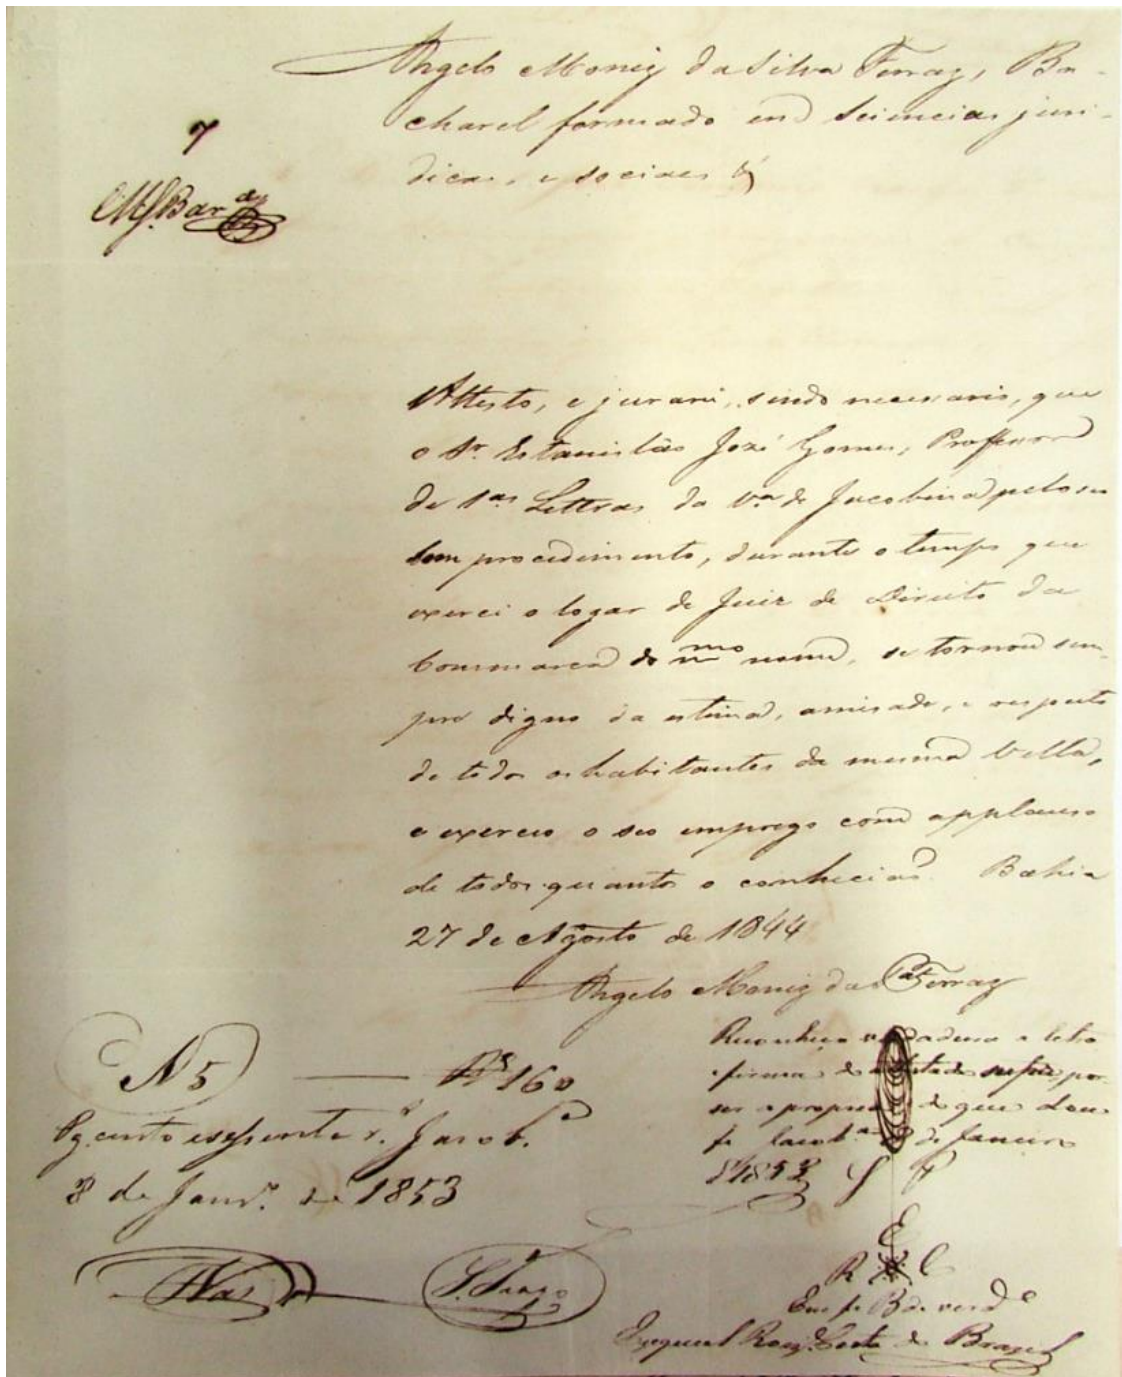 Angelo Moniz da Silva Ferraz, Ba-
charel formado em Sciencias juri-
dicas, e sociaes &
7
Attesto, e jurarei, sendo necessario, que
o Sr. Estanisláo Jozé Gomes, Professor
de 1as Lettras da Va de Jacobina pelo seu
bom procedimento, durante o tempo que
exerci o logar de Juiz de Direito da
Commarca do mmo nome, se tornou sem-
pre digno da estima, amisade, e respeito
de todos os habitantes da mesma Villa,
e exerceo o seo emprego com applauso
de todos quantos o conhecião. Bahia
27 de Agosto de 1844
Angelo Moniz da Sa Ferraz
N 5 Rs 160
Pg cento e sessenta rs. Jacoba
8 de Janro de 1853
Reconheço verdadeira a letra
e firma do attestado supra por
ser a propria do que dou
fe Jacoba 8 de Janeiro
de 1853
Em fe de verde
Ezequiel